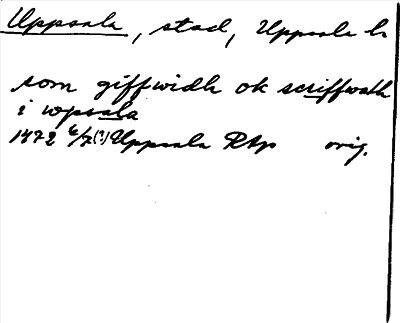 Uppsala, stad, Uppsala h
som giffwidh ok scriffwath
i wpsala
1472 6/7(?) Uppsala RAp orig.